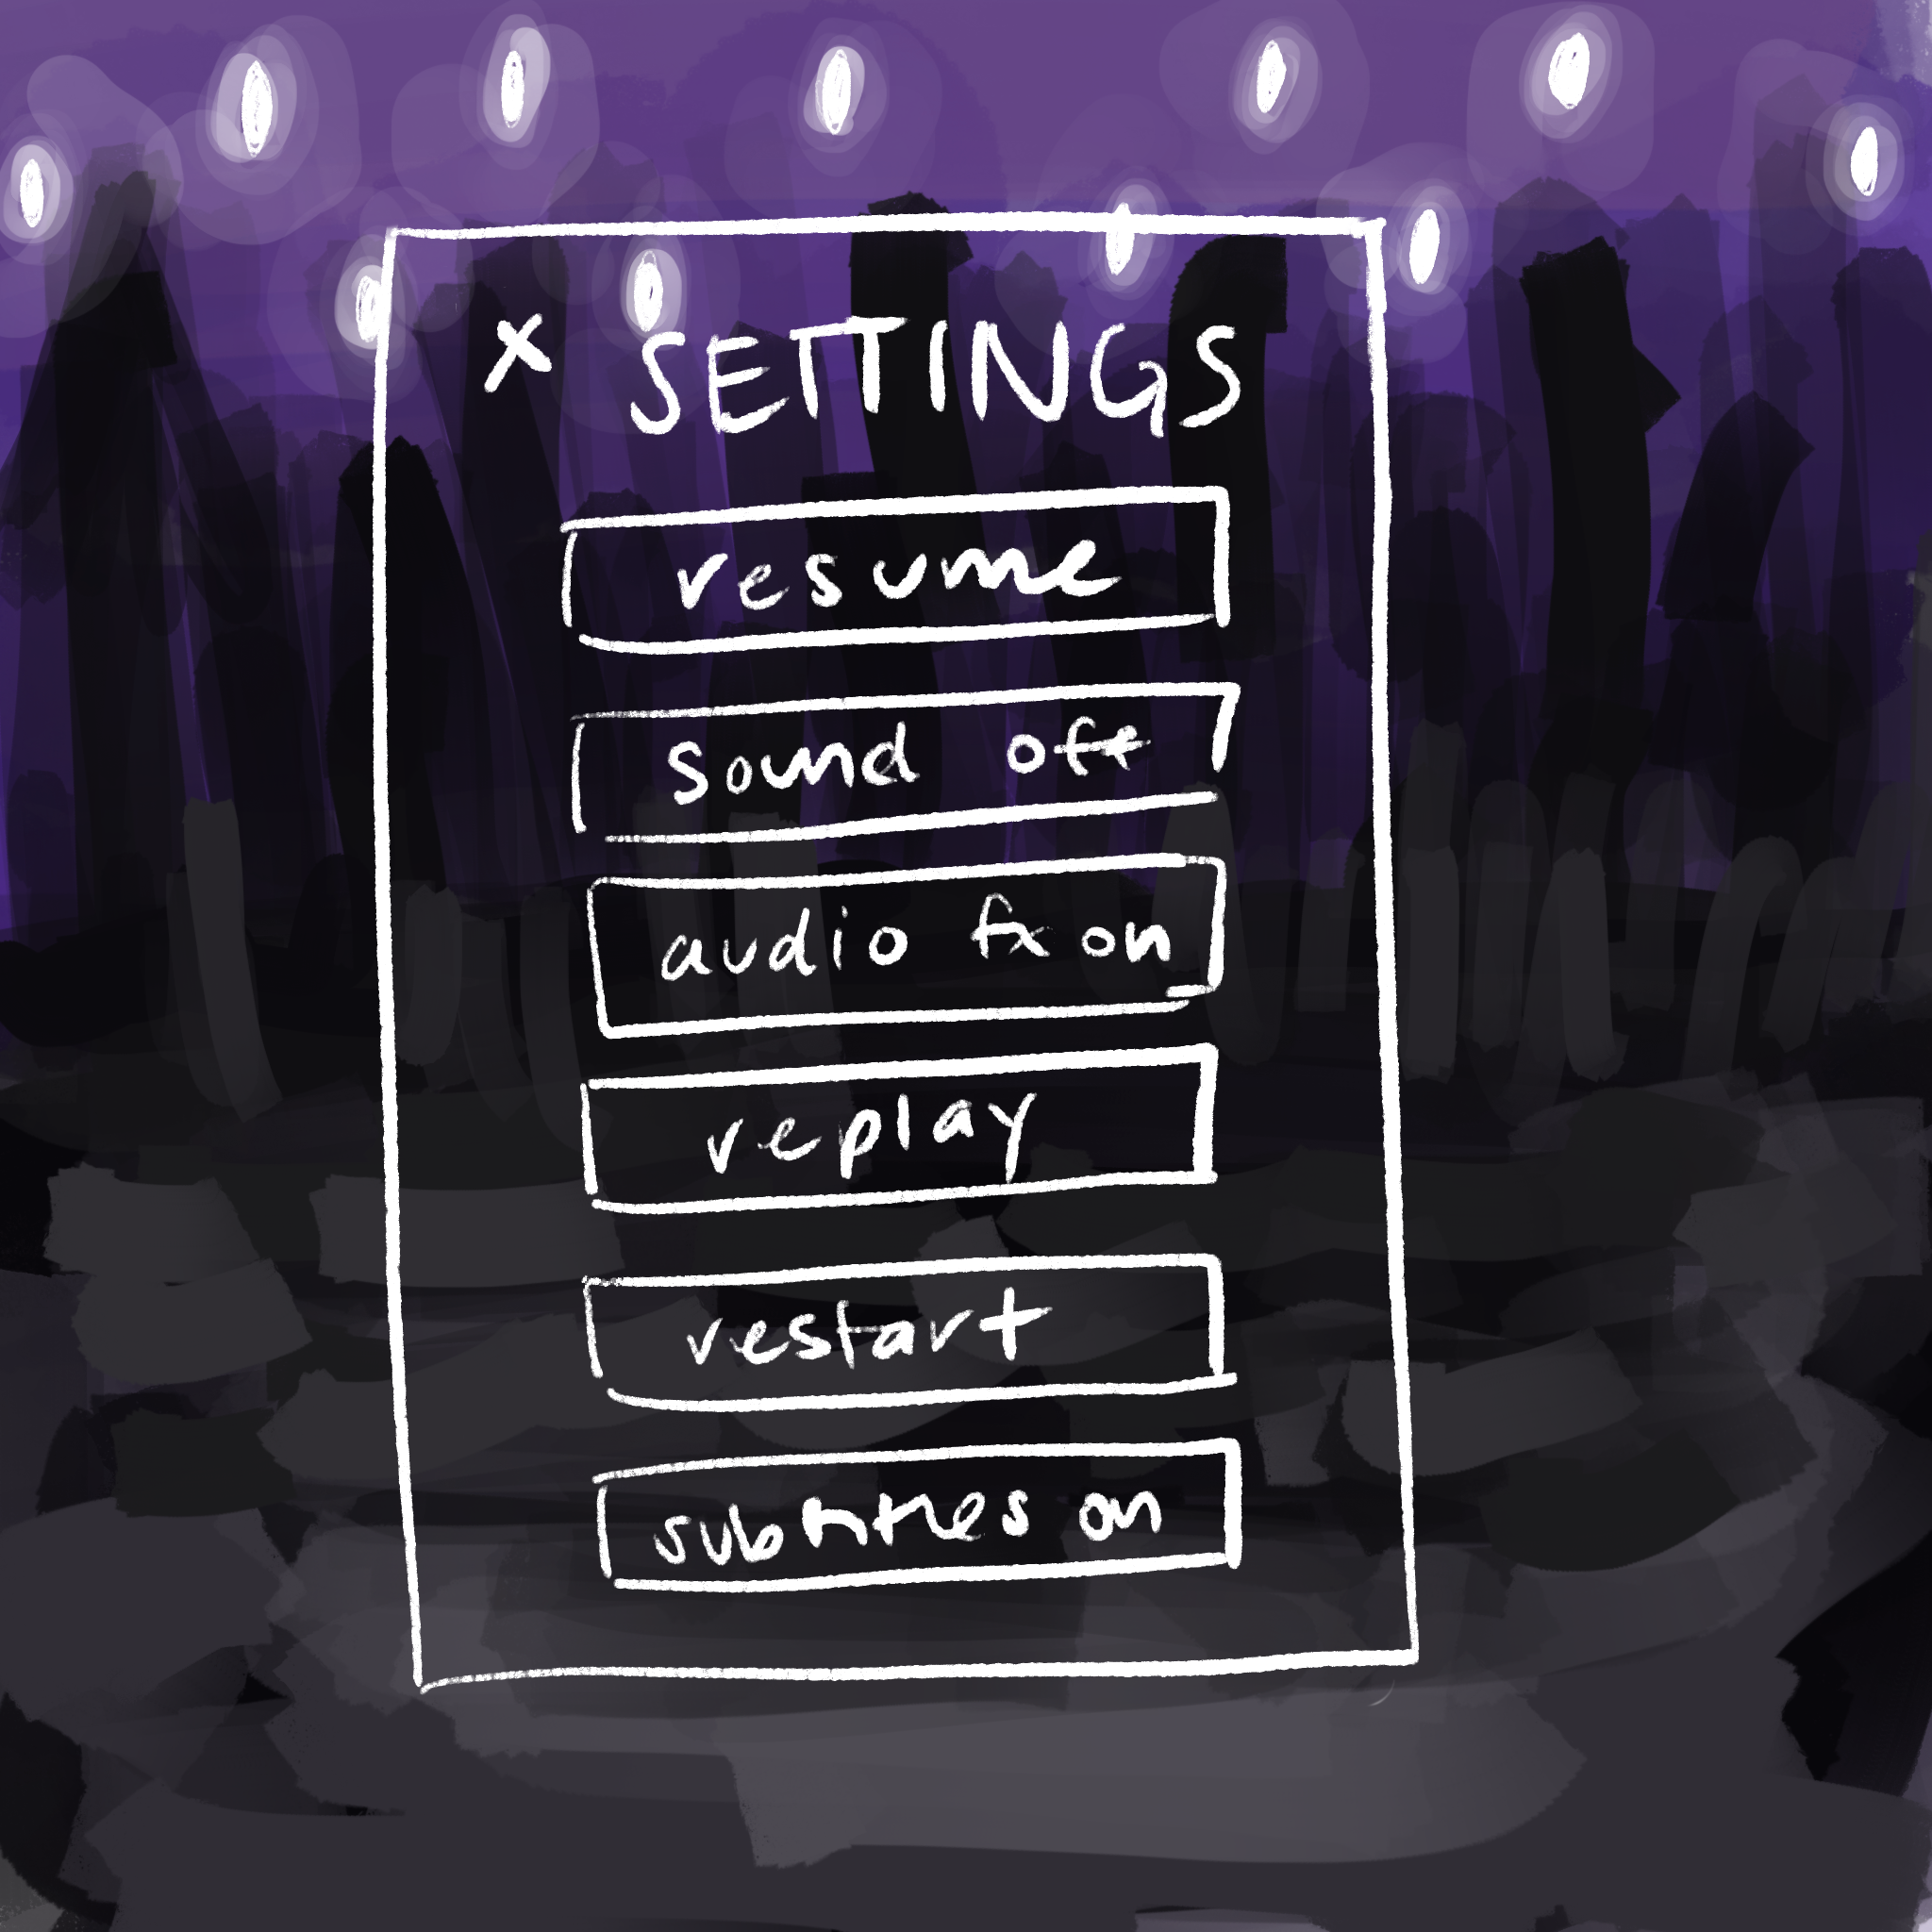 x SETTINGS
resume
sound off
audio fx on
replay
restart
subtitles on